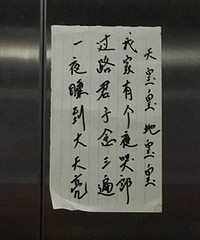 天皇皇 地皇皇
我家有个夜哭郎
过路君子念三遍
一夜睡到大天亮